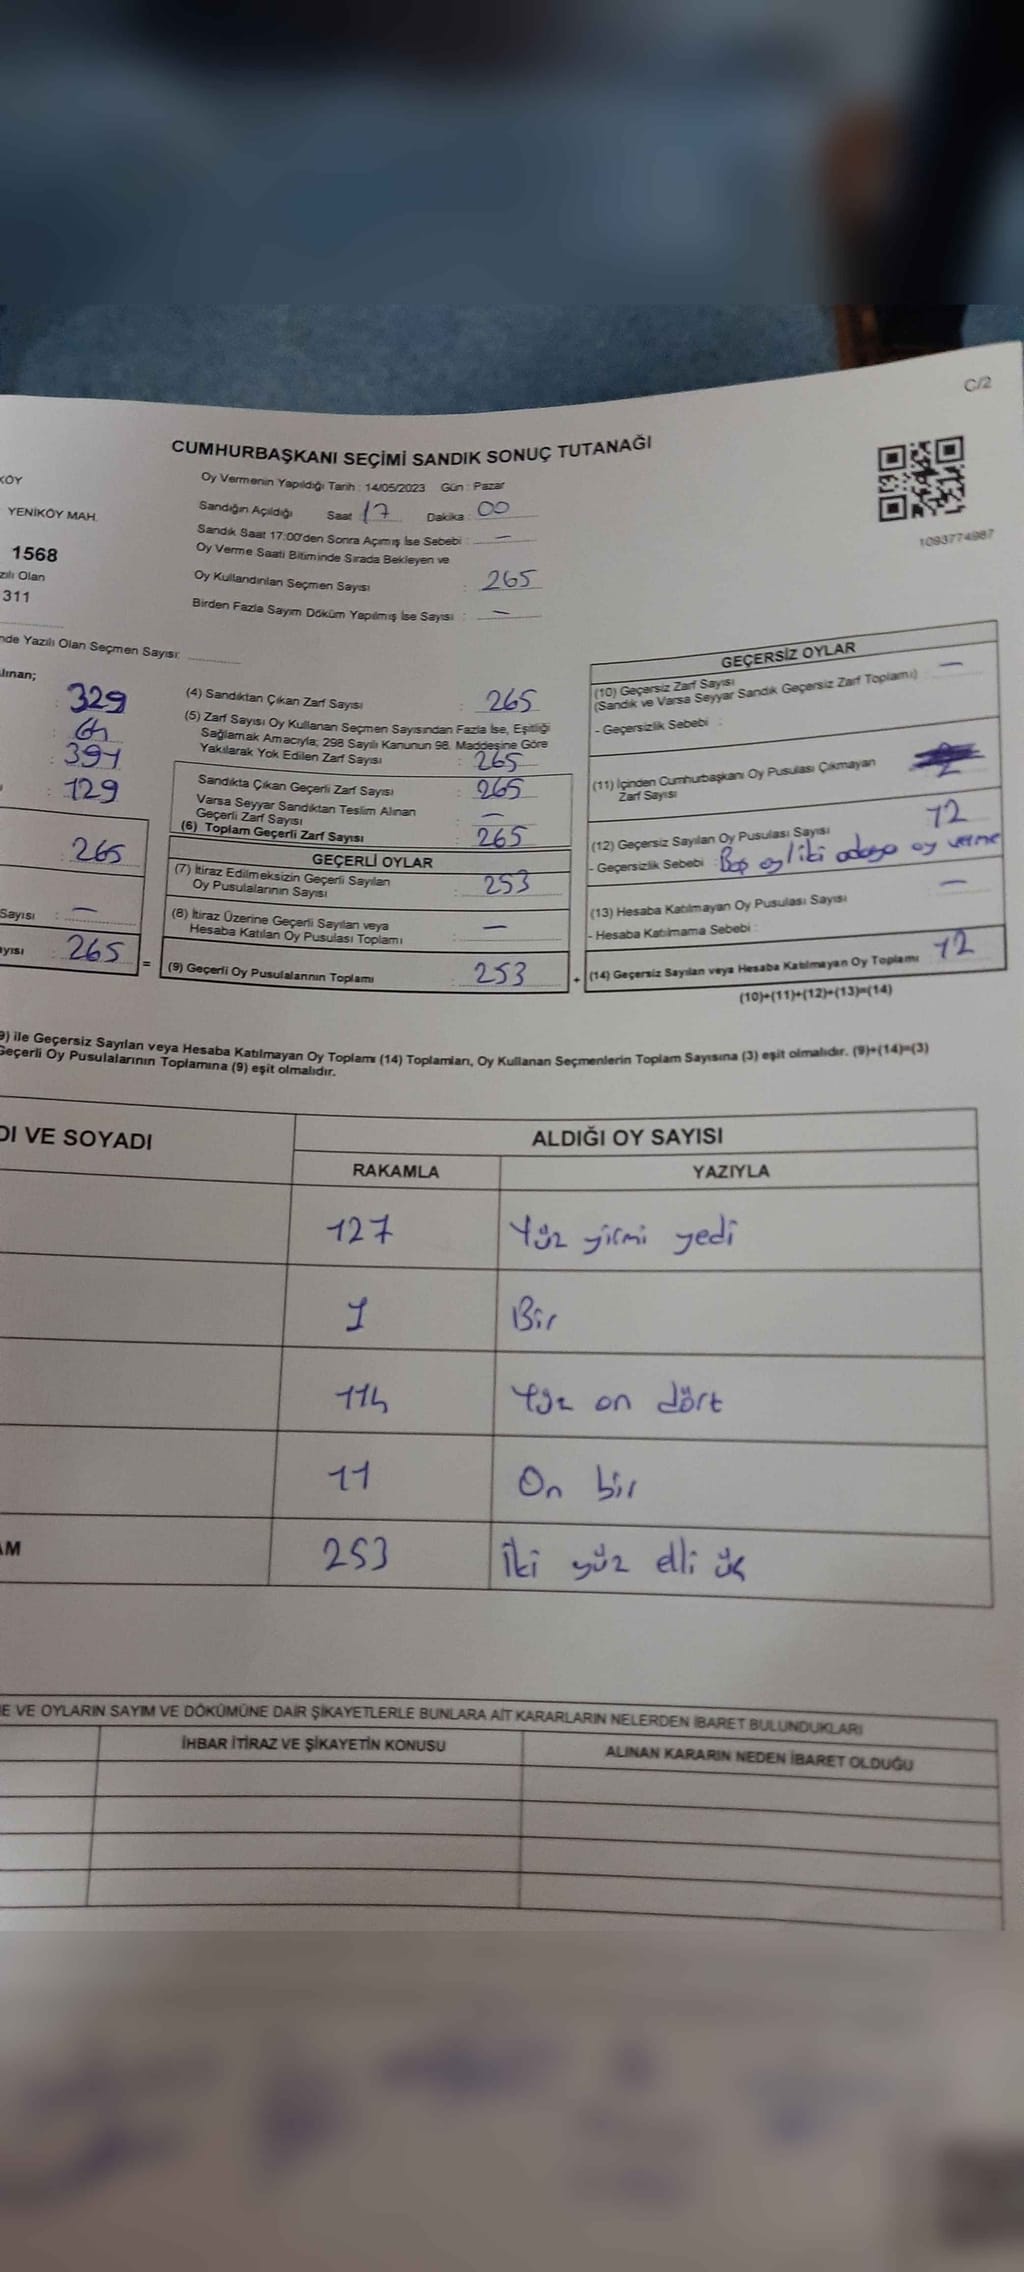 C/2
CUMHURBAŞKANI SEÇİMİ SANDIK SONUÇ TUTANAĞI
KÖY
Oy Vermenin Yapıldığı Tarih : 14/05/2023 Gün : Pazar
YENİKÖY MAH.
Sandığın Açıldığı Saat 17 Dakika : 00
1093774987
Sandık Saat 17:00'den Sonra Açılmış İse Sebebi : —
1568
Oy Verme Saati Bitiminde Sırada Bekleyen ve
zılı Olan
Oy Kullandırılan Seçmen Sayısı : 265
311
Birden Fazla Sayım Döküm Yapılmış İse Sayısı : —
nde Yazılı Olan Seçmen Sayısı:
alınan;
: 329
: 394
: 129
265
Sayısı : —
ayısı : 265 =
(4) Sandıktan Çıkan Zarf Sayısı : 265
(5) Zarf Sayısı Oy Kullanan Seçmen Sayısından Fazla İse, Eşitliği
Sağlamak Amacıyla; 298 Sayılı Kanunun 98. Maddesine Göre
Yakılarak Yok Edilen Zarf Sayısı : 265
Sandıkta Çıkan Geçerli Zarf Sayısı : 265
Varsa Seyyar Sandıktan Teslim Alınan
Geçerli Zarf Sayısı : —
(6) Toplam Geçerli Zarf Sayısı : 265
GEÇERLİ OYLAR
(7) İtiraz Edilmeksizin Geçerli Sayılan
Oy Pusulalarının Sayısı : 253
(8) İtiraz Üzerine Geçerli Sayılan veya
Hesaba Katılan Oy Pusulası Toplamı : —
(9) Geçerli Oy Pusulalarının Toplamı : 253 +
GEÇERSİZ OYLAR
(10) Geçersiz Zarf Sayısı
(Sandık ve Varsa Seyyar Sandık Geçersiz Zarf Toplamı) : —
- Geçersizlik Sebebi :
(11) İçinden Cumhurbaşkanı Oy Pusulası Çıkmayan
Zarf Sayısı
(12) Geçersiz Sayılan Oy Pusulası Sayısı 12
- Geçersizlik Sebebi : Boş oy / iki adaya oy verme
(13) Hesaba Katılmayan Oy Pusulası Sayısı —
- Hesaba Katılmama Sebebi :
(14) Geçersiz Sayılan veya Hesaba Katılmayan Oy Toplamı 12
(10)+(11)+(12)+(13)=(14)
9) ile Geçersiz Sayılan veya Hesaba Katılmayan Oy Toplamı (14) Toplamları, Oy Kullanan Seçmenlerin Toplam Sayısına (3) eşit olmalıdır. (9)+(14)=(3)
Geçerli Oy Pusulalarının Toplamına (9) eşit olmalıdır.
DI VE SOYADI
ALDIĞI OY SAYISI
RAKAMLA YAZIYLA
127 Yüz yirmi yedi
1 Bir
114 Yüz on dört
11 On bir
AM 253 İki yüz elli üç
E VE OYLARIN SAYIM VE DÖKÜMÜNE DAİR ŞİKAYETLERLE BUNLARA AİT KARARLARIN NELERDEN İBARET BULUNDUKLARI
İHBAR İTİRAZ VE ŞİKAYETİN KONUSU ALINAN KARARIN NEDEN İBARET OLDUĞU